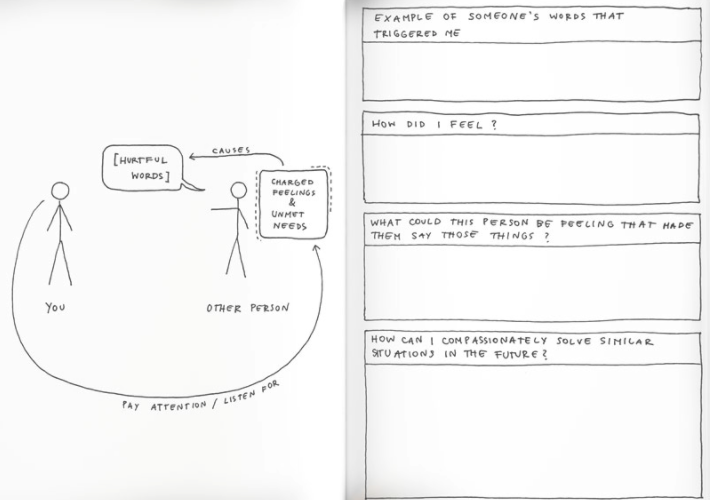 CAUSES
[HURTFUL
WORDS]
CHARGED
FEELINGS
&
UNMET
NEEDS
YOU
OTHER PERSON
PAY ATTENTION / LISTEN FOR
EXAMPLE OF SOMEONE'S WORDS THAT
TRIGGERED ME
HOW DID I FEEL?
WHAT COULD THIS PERSON BE FEELING THAT MADE
THEM SAY THOSE THINGS?
HOW CAN I COMPASSIONATELY SOLVE SIMILAR
SITUATIONS IN THE FUTURE?